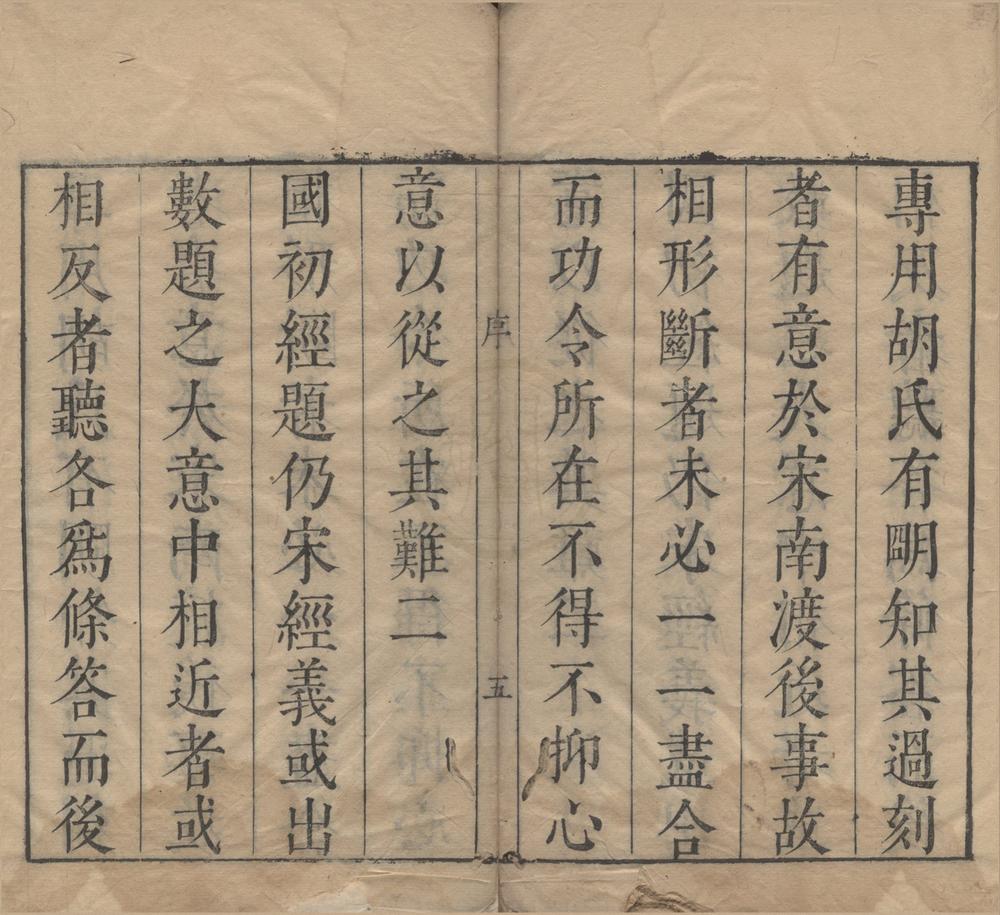 專用胡氏有明知其過刻
者有意於宋南渡後事故
相形斷者未必一一盡合
而功令所在不得不抑心
序 五
意以從之其難二
國初經題仍宋經義或出
數題之大意中相近者或
相反者聽各爲條答而後